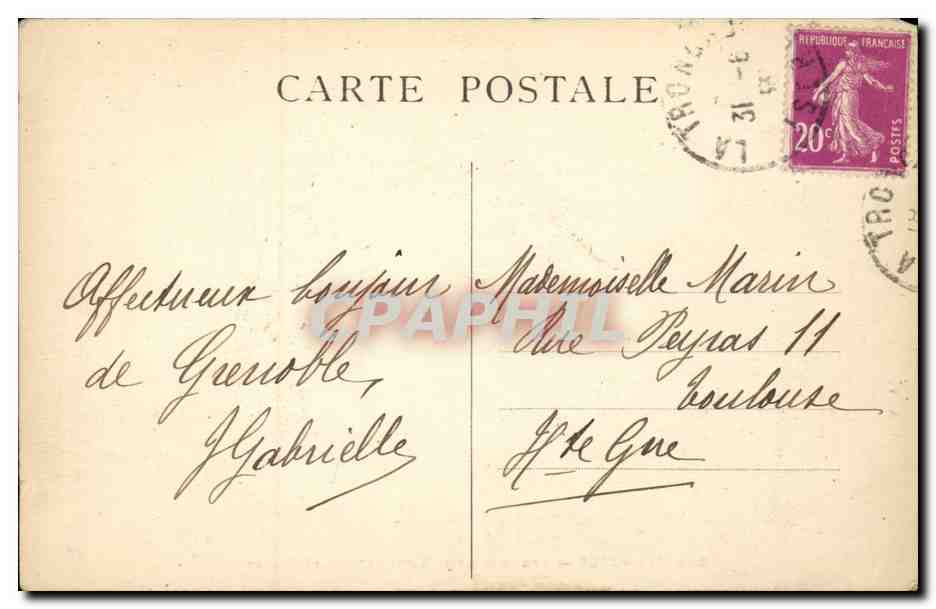 CARTE POSTALE
LA TRON
31
REPUBLIQUE FRANÇAISE
20c
POSTES
A TRO
Affectueux bonjour
de Grenoble,
JGabrielle
Mademoiselle Marin
Rue Peyras 11
Toulouse
Hte Gne
CPAPHIL